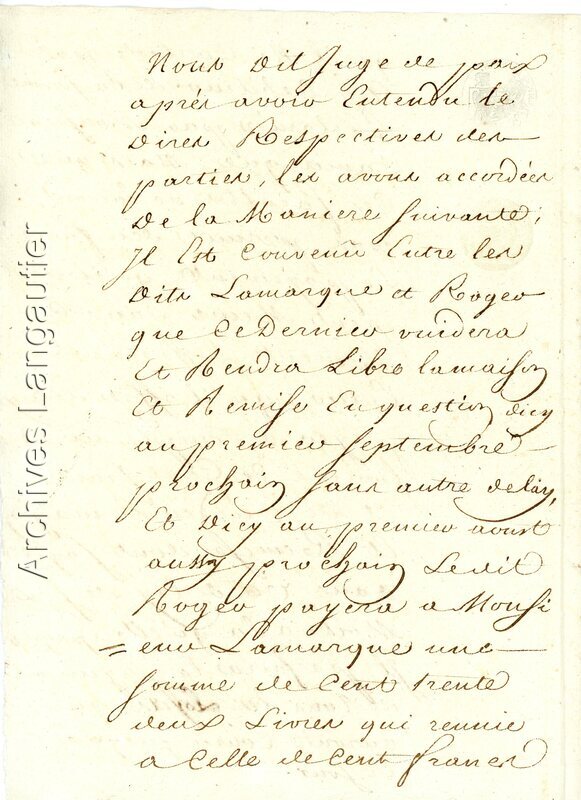 Nous dit Juge de paix
aprés avoir Entendu le
Dires Respectives des
parties, les avons accordées
De la Maniere suivante;
Il Est Convenû Entre les
Dits Lamarque et Roger
que Ce Dernier vuidera
Et Rendra Libre la maison
Et Remise En question dicy
au premier septembre
prochain sans autre delay,
Et Dicy au premier aoust
aussy prochain Ledit
Roger payera a Monsi
= eur Lamarque une
somme de Cent trente
deux Livres qui reunie
a Celle de Cent francs
Archives Langautier